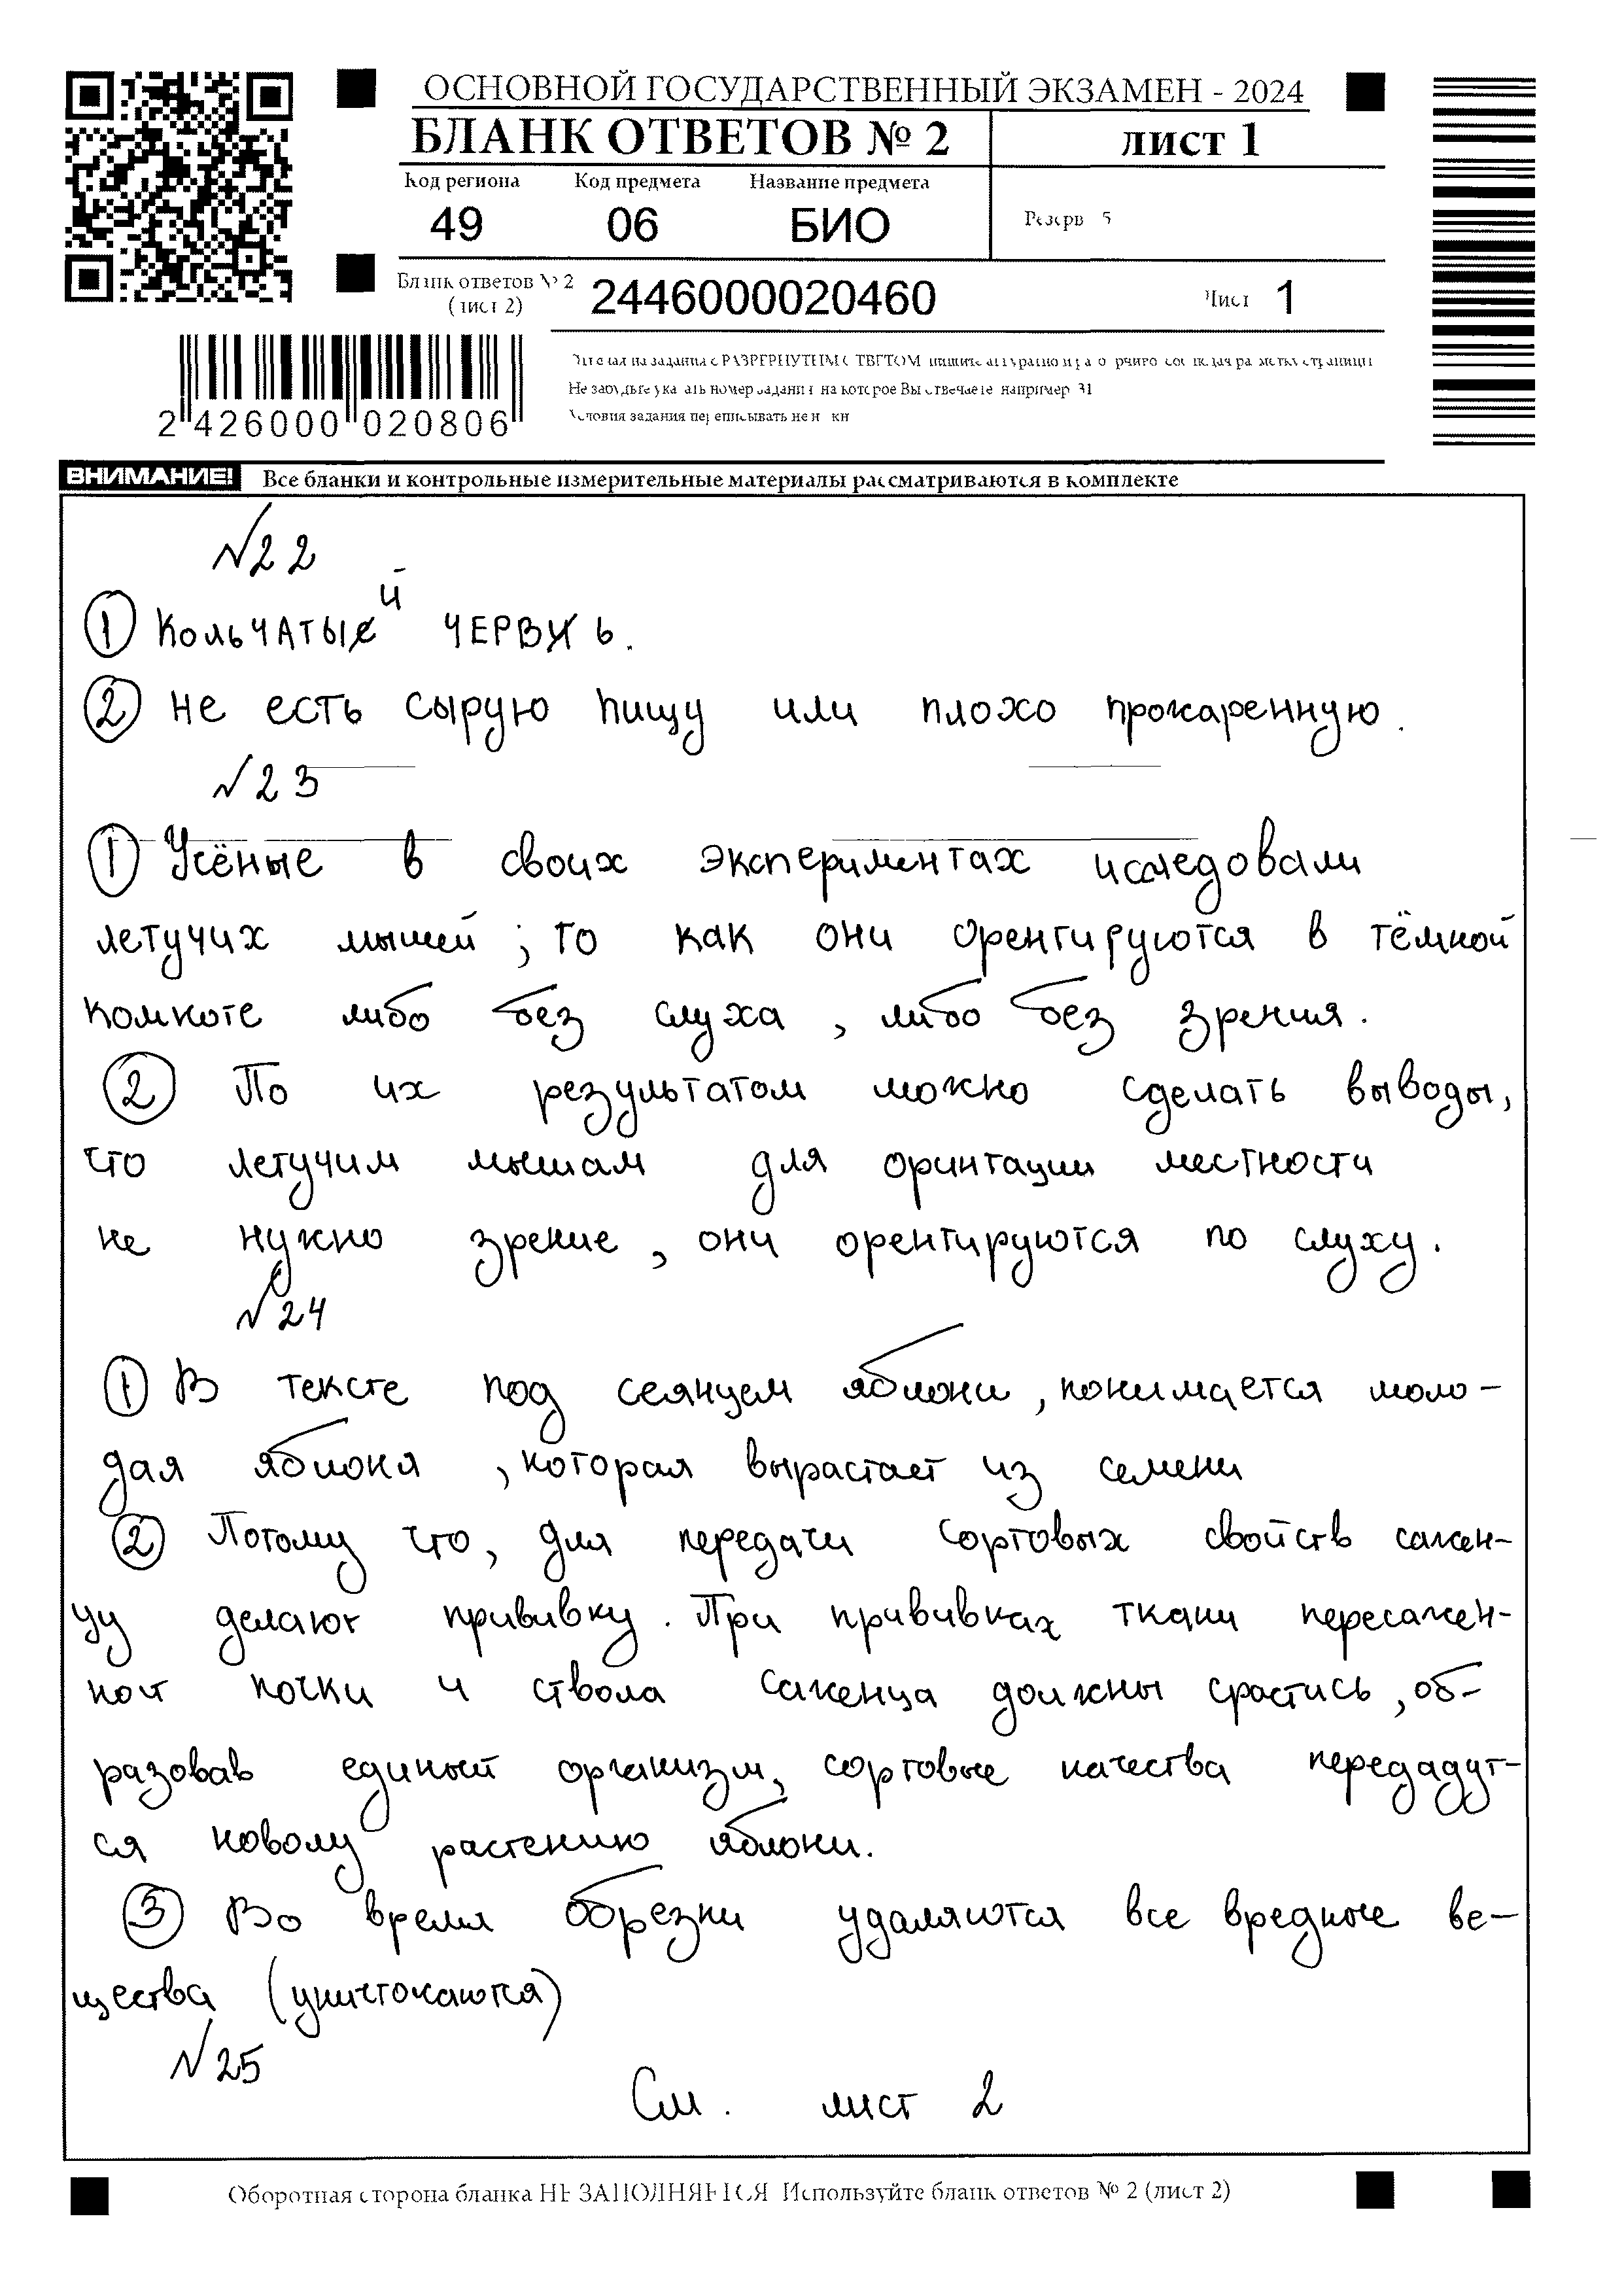 ОСНОВНОЙ ГОСУДАРСТВЕННЫЙ ЭКЗАМЕН - 2024
БЛАНК ОТВЕТОВ № 2 лист 1
Код региона Код предмета Название предмета
49 06 БИО Резерв 5
Бланк ответов № 2
(лист 2) 2446000020460 Лист 1
2 426000 020806
Не забудьте указать номер задания на которое Вы отвечаете например 31
Условия задания переписывать не нужно
ВНИМАНИЕ! Все бланки и контрольные измерительные материалы рассматриваются в комплекте
№22
① Кольчатый червь.
② Не есть сырую пищу или плохо прожаренную.
№23
① Учёные в своих экспериментах исследовали
летучих мышей; то как они орентируются в тёмной
комноте либо без слуха, либо без зрения.
② По их результатом можно сделать выводы,
что летучим мышам для оринтации местности
не нужно зрение, они орентируются по слуху.
№24
① В тексте под сеянцем яблони, понимается моло-
дая яблоня, которая вырастает из семени
② Потому что, для передачи сортовых свойств сажен-
цу делают прививку. При прививках ткани пересажен-
ной почки и ствола саженца должны срастись, об-
разовав единый организм, сортовые качества передадут-
ся новому растению яблони.
③ Во время обрезки удаляются все вредные ве-
щества (уничтожаются)
№25
См. лист 2
Оборотная сторона бланка НЕ ЗАПОЛНЯЕТСЯ Используйте бланк ответов № 2 (лист 2)